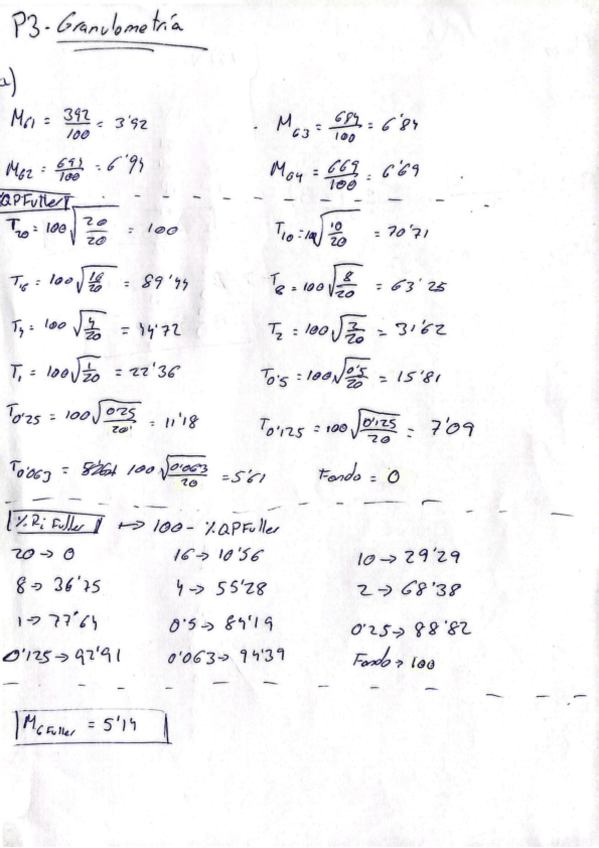 P3 - Granulometría
a)
MG1 = 392/100 = 3'92 MG3 = 684/100 = 6'84
MG2 = 694/100 = 6'94 MG4 = 669/100 = 6'69
%QPFuller
T20 = 100√(20/20) = 100 T10 = 100√(10/20) = 70'71
T16 = 100√(16/20) = 89'44 T8 = 100√(8/20) = 63'25
T4 = 100√(4/20) = 44'72 T2 = 100√(2/20) = 31'62
T1 = 100√(1/20) = 22'36 T0'5 = 100√(0'5/20) = 15'81
T0'25 = 100√(0'25/20) = 11'18 T0'125 = 100√(0'125/20) = 7'09
T0'063 = 100√(0'063/20) = 5'61 Fondo = 0
%Ri Fuller ↦ 100 - %QPFuller
20 → 0 16 → 10'56 10 → 29'29
8 → 36'75 4 → 55'28 2 → 68'38
1 → 77'64 0'5 → 84'19 0'25 → 88'82
0'125 → 92'91 0'063 → 94'39 Fondo → 100
MG Fuller = 5'14